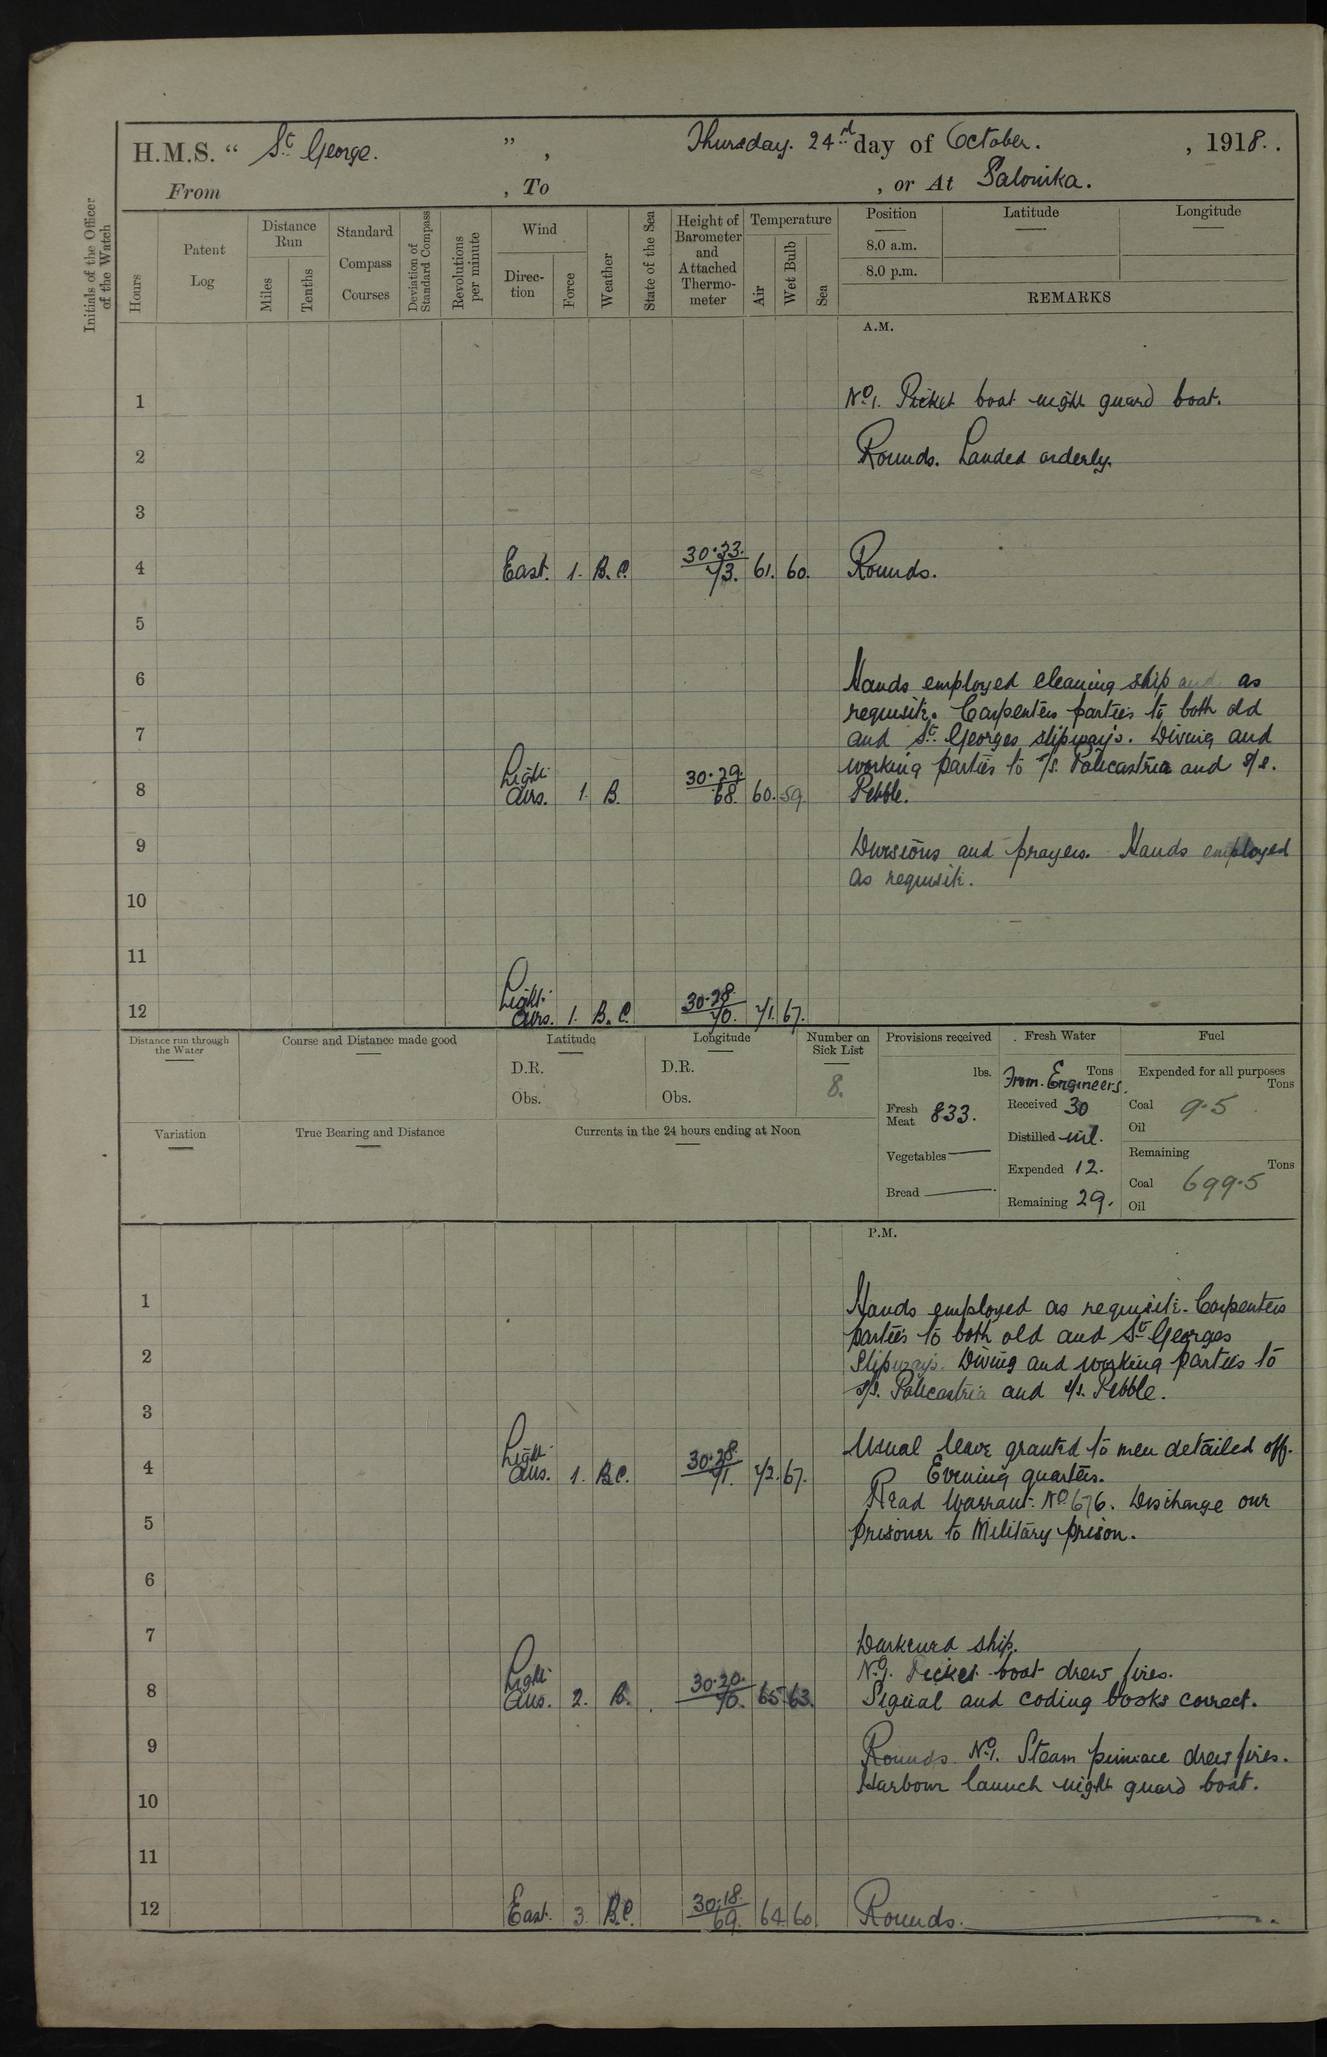 H.M.S. “ St. George. ” , Thursday. 24rd day of October. , 1918.
From , To , or At Salonika.
Initials of the Officer of the Watch
Hours
Patent Log
Distance Run
Miles
Tenths
Standard Compass Courses
Deviation of Standard Compass
Revolutions per minute
Wind
Direction
Force
Weather
State of the Sea
Height of Barometer and Attached Thermometer
Temperature
Air
Wet Bulb
Sea
Position Latitude Longitude
8.0 a.m.
8.0 p.m.
REMARKS
A.M.
1 No. 1. Picket boat night guard boat.
2 Rounds. Landed orderly.
3
4 East. 1. B.C. 30.33. 73. 61. 60. Rounds.
5
6 Hands employed cleaning ship and as
requisite. Carpenters parties to both old
7 and St. Georges slipway's. Diving and
working parties to s/s. Palicastria and s/s.
8 Light airs. 1. B. 30.29. 68. 60. 59. Pebble.
9 Divisions and prayers. Hands employed
as requisite.
10
11
12 Light airs. 1. B.C. 30.28. 70. 71. 67.
Distance run through the Water
Course and Distance made good
Latitude
D.R.
Obs.
Longitude
D.R.
Obs.
Number on Sick List
8.
Variation
True Bearing and Distance
Currents in the 24 hours ending at Noon
Provisions received
lbs.
Fresh Meat 833.
Vegetables —
Bread —
Fresh Water
Tons
From Engineers.
Received 30
Distilled nil.
Expended 12.
Remaining 29.
Fuel
Expended for all purposes
Tons
Coal 9.5
Oil
Remaining
Tons
Coal 699.5
Oil
P.M.
1 Hands employed as requisite. Carpenters
parties to both old and St. Georges
2 Slipway's. Diving and working parties to
s/s. Palicastria and s/s. Pebble.
3
Usual leave granted to men detailed off.
4 Light airs. 1. B.C. 30.28. 71. 72. 67. Evening quarters.
Read Warrant No. 676. Discharge our
5 prisoner to Military prison.
6
7 Darkened ship.
No. 1. Picket boat drew fires.
8 Light airs. 2. B. 30.20. 70. 65. 63. Signal and coding books correct.
9 Rounds. No. 1. Steam pinnace drew fires.
Harbour launch night guard boat.
10
11
12 East. 3. B.C. 30.18. 69. 64. 60 Rounds.